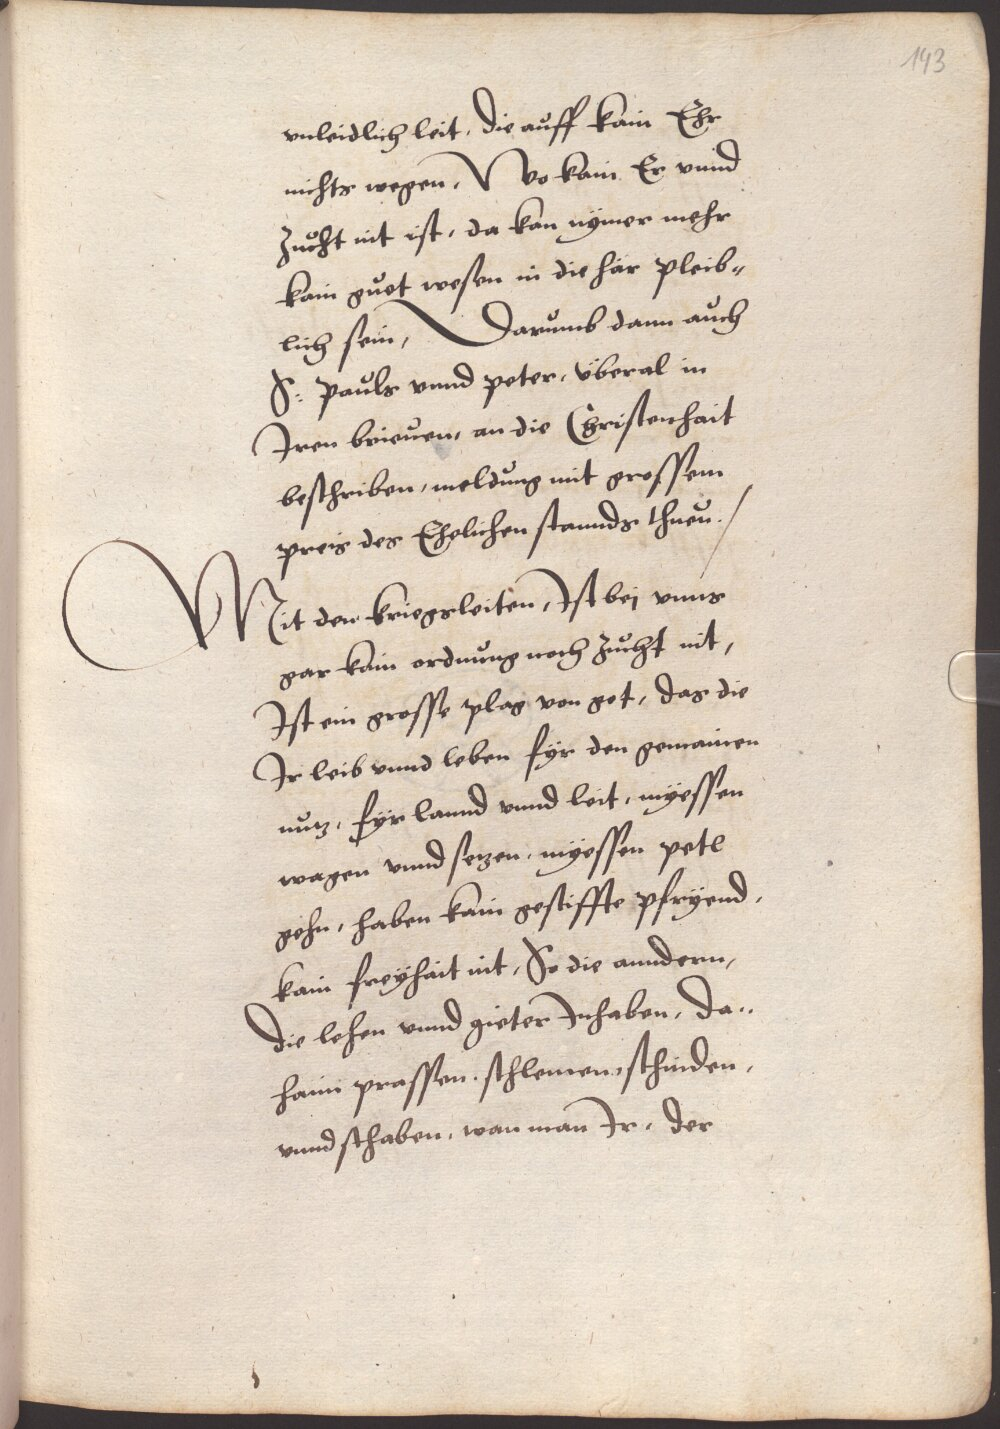 143
vnleidlich leit, die auff kain Ehr
nichts wegen, Wo kain Er vnnd
Zucht nit ist, da kan nÿmer mehr
kain guot wesen in die har pleib„
lich sein, Darumb dann auch
S: Pauls vnnd peter, überal in
Jren brieuen, an die Christenhait
beschriben, meldung mit grossem
preis des Ehelichen stannds thuen./
Mit den kriegsleiten, Jst bej vnns
gar kain ordnung noch Zucht nit,
Jst ein grosse plag von got, das die
Jr leib vnnd leben fÿr den gemainen
nutz, fÿr lannd vnnd leit, mÿessen
wagen vnnd setzen, mÿessen petl
gehn, haben kain gestiffte pfrÿend,
kain freÿhait nit, So die anndern,
die lehen vnnd gieter Jnhaben, da„
haim prassen, schlemen, schinden,
vnnd schaben, wan man Jr, der